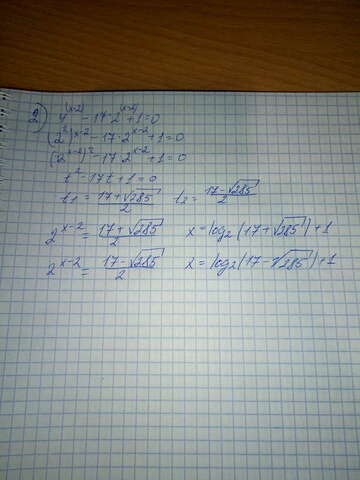 2) 4^(x-2) - 17·2^(x-2) + 1 = 0
(2²)^x-2 - 17·2^x-2 + 1 = 0
(2^x-2)² - 17·2^x-2 + 1 = 0
t² - 17t + 1 = 0
t₁ = (17+√285)/2 t₂ = (17-√285)/2
2^x-2 = (17+√285)/2 x = log₂(17+√285)+1
2^x-2 = (17-√285)/2 x = log₂(17-√285)+1